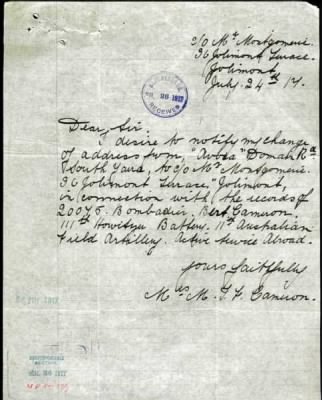 c/o Mrs Montgomerie.
36 Jolimont Terrace.
Jolimont.
July. 24th 17.
RECEIVED
Dear, Sir
I desire to notify my change
of address from, "Domain Rd
South Yarra, to c/o Mrs Montgomerie.
36 Jolimont Terrace," Jolimont,
in connection with the records of
20075. Bombadier. Bert Cameron.
111th Howitzer Battery. 11th Australian
Field Artillery. Active Service Abroad.
Yours faithfully
Mrs M. Cameron.
1917